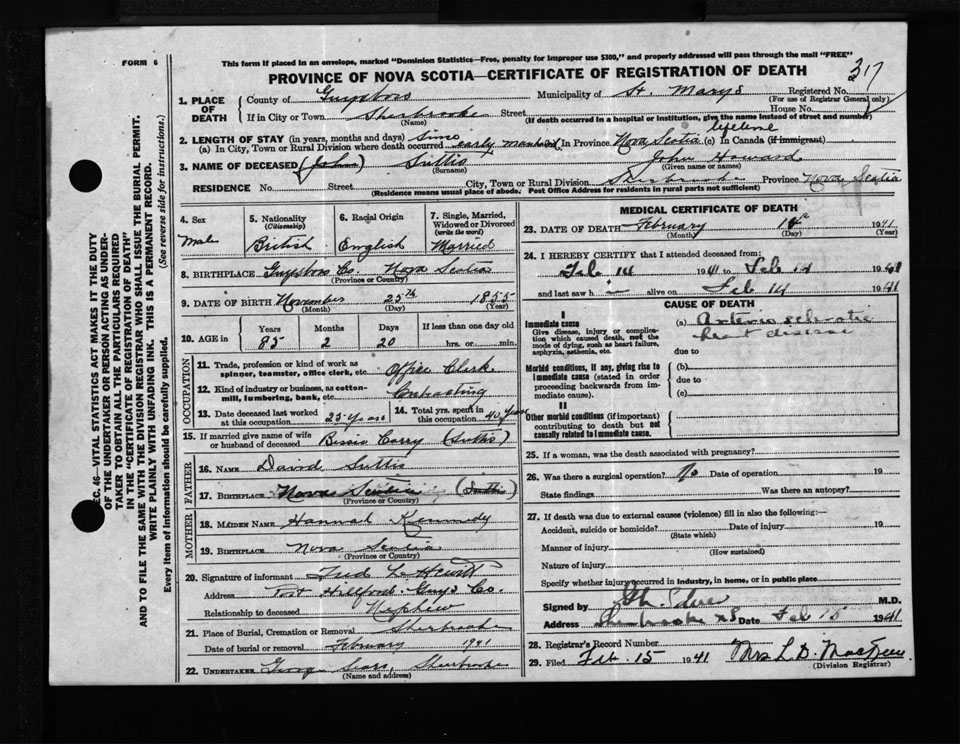 FORM 6
This form if placed in an envelope, marked "Dominion Statistics—Free, penalty for improper use $300," and properly addressed will pass through the mail "FREE"
PROVINCE OF NOVA SCOTIA—CERTIFICATE OF REGISTRATION OF DEATH
317
1. PLACE OF DEATH
County of Guysboro Municipality of St. Mary's Registered No.
(For use of Registrar General only)
If in City or Town Sherbrooke Street House No.
(Name) (If death occurred in a hospital or institution, give the name instead of street and number)
2. LENGTH OF STAY (in years, months and days) since lifetime
(a) In City, Town or Rural Division where death occurred early manhood In Province Nova Scotia (c) In Canada (if immigrant)
3. NAME OF DECEASED (John) Suttis John Howard
(Surname) (Given name or names)
RESIDENCE No. Street City, Town or Rural Division Sherbrooke Province Nova Scotia
(Residence means usual place of abode. Post Office Address for residents in rural parts not sufficient)
4. Sex
Male
5. Nationality
(Citizenship)
British
6. Racial Origin
English
7. Single, Married, Widowed or Divorced
(write the word)
Married
8. BIRTHPLACE Guysboro Co. Nova Scotia
(Province or Country)
9. DATE OF BIRTH November 25th 1855
(Month) (Day) (Year)
10. AGE in
Years Months Days If less than one day old
85 2 20 hrs. or min.
OCCUPATION
11. Trade, profession or kind of work as spinner, teamster, office clerk, etc. Office Clerk
12. Kind of industry or business, as cotton-mill, lumbering, bank, etc. Contracting
13. Date deceased last worked at this occupation 25 years
14. Total yrs. spent in this occupation 40 years
15. If married give name of wife or husband of deceased Bessie Corry (Suttis)
FATHER
16. NAME David Suttis
17. BIRTHPLACE Nova Scotia
(Province or Country)
MOTHER
18. MAIDEN NAME Hannah Kennedy
19. BIRTHPLACE Nova Scotia
(Province or Country)
20. Signature of informant Fred L. Hewitt
Address Port Hillford Guys Co.
Relationship to deceased Nephew
21. Place of Burial, Cremation or Removal Sherbrooke
Date of burial or removal February 1941
22. UNDERTAKER George Sears, Sherbrooke
(Name and address)
MEDICAL CERTIFICATE OF DEATH
23. DATE OF DEATH February 1941
(Month) (Day) (Year)
24. I HEREBY CERTIFY that I attended deceased from:
Feb 14 1941 to Feb 14 1941
and last saw h alive on Feb 14 1941
CAUSE OF DEATH
I
Immediate cause
Give disease, injury or complication which caused death, not the mode of dying, such as heart failure, asphyxia, asthenia, etc.
(a) Arterio sclerotic
heart disease
due to
Morbid conditions, if any, giving rise to immediate cause (stated in order proceeding backwards from immediate cause).
(b)
due to
(c)
II
Other morbid conditions (if important) contributing to death but not causally related to immediate cause.
25. If a woman, was the death associated with pregnancy?
26. Was there a surgical operation? No Date of operation 19
State findings Was there an autopsy?
27. If death was due to external causes (violence) fill in also the following:—
Accident, suicide or homicide? Date of injury 19
(State which)
Manner of injury
(How sustained)
Nature of injury
Specify whether injury occurred in industry, in home, or in public place
Signed by M.D.
Address Sherbrooke NS Date Feb 15 1941
28. Registrar's Record Number
29. Filed Feb. 15 1941 Mrs L. D.
(Division Registrar)
SEC. 46—VITAL STATISTICS ACT MAKES IT THE DUTY
OF THE UNDERTAKER OR PERSON ACTING AS UNDER-
TAKER TO OBTAIN ALL THE PARTICULARS REQUIRED
IN THE "CERTIFICATE OF REGISTRATION OF DEATH"
AND TO FILE THE SAME WITH THE DIVISION REGISTRAR WHO SHALL ISSUE THE BURIAL PERMIT.
WRITE PLAINLY WITH UNFADING INK. THIS IS A PERMANENT RECORD.
(See reverse side for instructions.)
Every item of information should be carefully supplied.